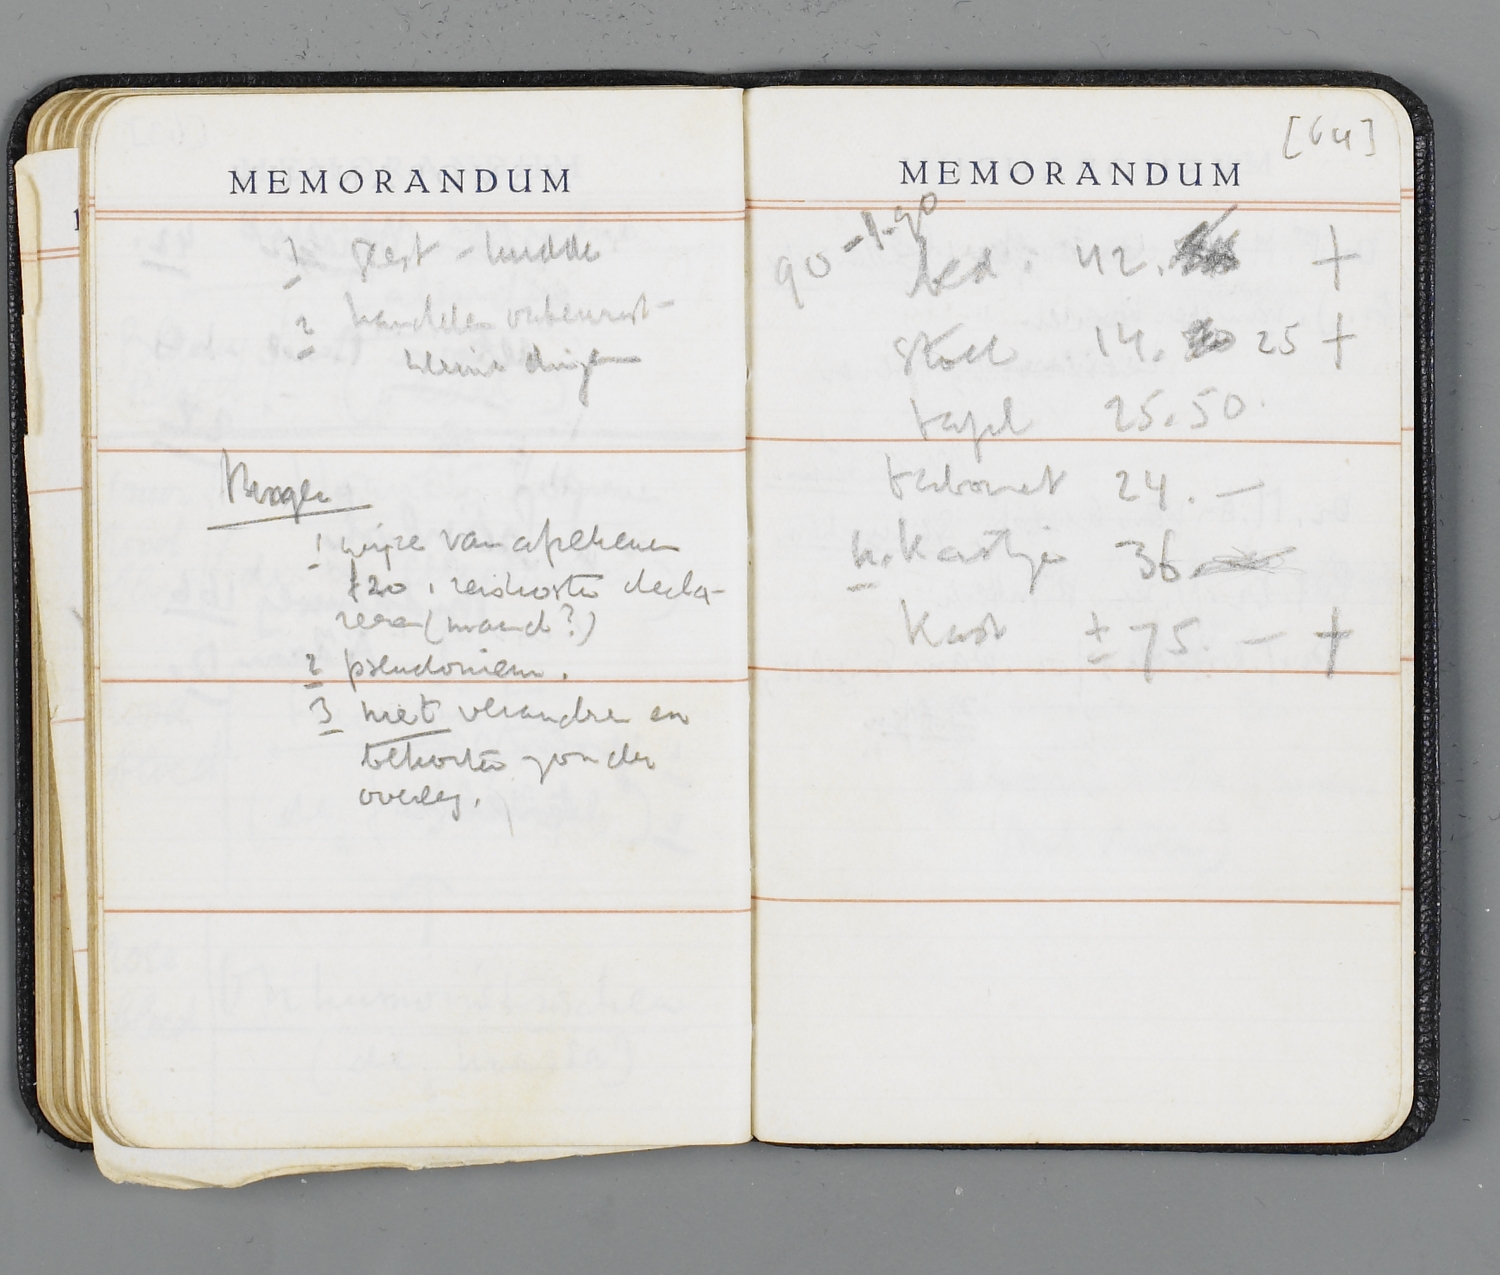 MEMORANDUM
1 geest - kudde
2 handelen
kleine dingen
Vragen
1 wijze van afrekenen
f 20, reiskosten decla-
reren (maand?)
2 pseudoniem.
3 niet veranderen en
bekorten zonder
overleg.
[64]
MEMORANDUM
90 - 1.90
bed. 42. +
stoel 14. 25 +
tafel 25.50
taboret 24. —
n. Kastje 36.
Kast ± 75. — +